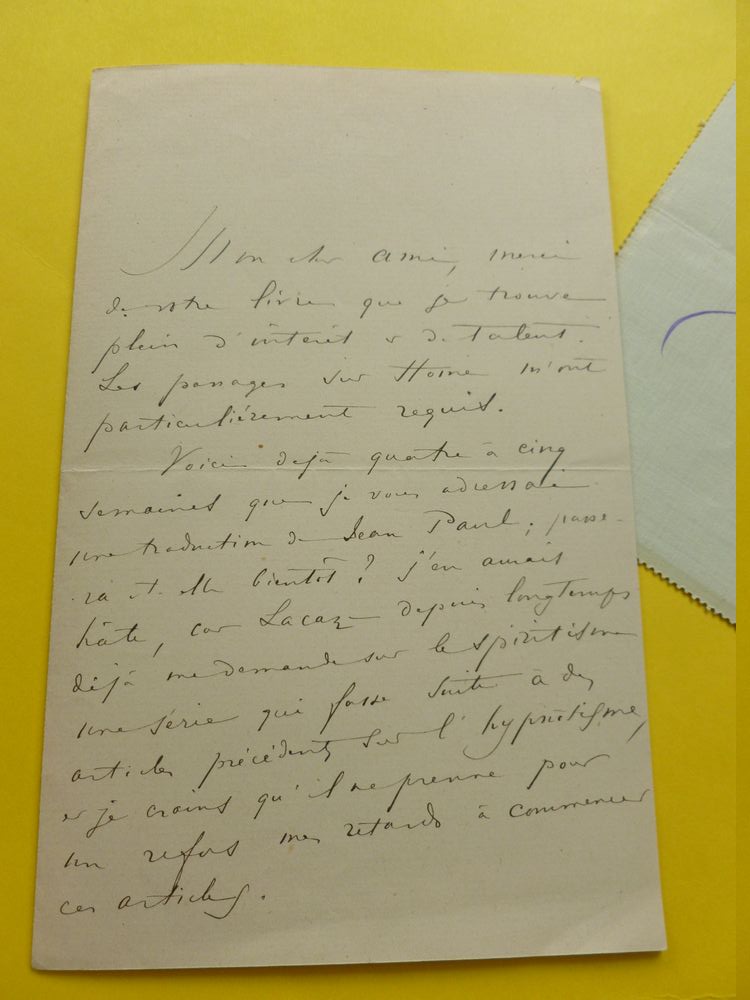 Mon cher ami, merci
de votre livre que je trouve
plein d'intérêt & de talent.
Les passages sur Home m'ont
particulièrement requis.
Voici déjà quatre à cinq
semaines que je vous adressai
une traduction de Jean Paul ; passe-
ra-t-elle bientôt ? j'en aurais
hâte, car Lacaze depuis longtemps
déjà me demande sur le spiritisme
une série qui fasse suite à des
articles précédents sur l'hypnotisme,
et je crains qu'il ne prenne pour
un refus mes retards à commencer
ces articles.